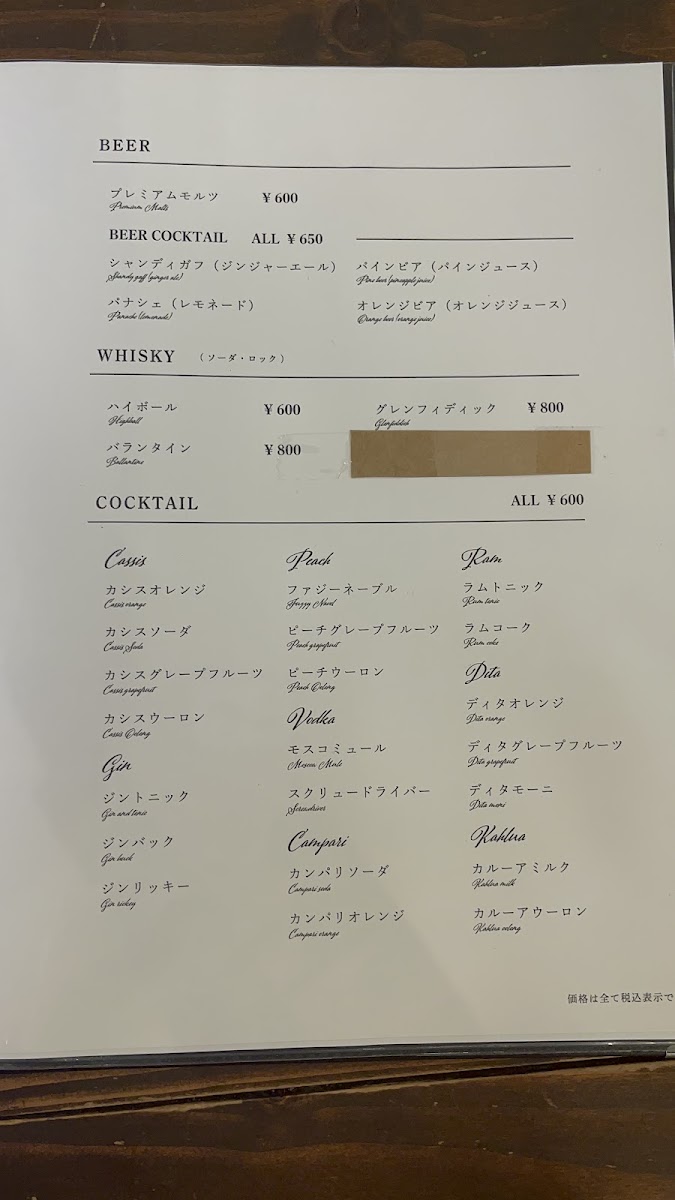 BEER
プレミアムモルツ ¥600
Premium Malts
BEER COCKTAIL ALL ¥650
シャンディガフ（ジンジャーエール） パインビア（パインジュース）
Shandy gaff (ginger ale) Pine beer (pineapple juice)
パナシェ（レモネード） オレンジビア（オレンジジュース）
Panache (lemonade) Orange beer (orange juice)
WHISKY （ソーダ・ロック）
ハイボール ¥600 グレンフィディック ¥800
Highball Glenfiddich
バランタイン ¥800
Ballantine
COCKTAIL ALL ¥600
Cassis
カシスオレンジ
Cassis orange
カシスソーダ
Cassis Soda
カシスグレープフルーツ
Cassis grapefruit
カシスウーロン
Cassis Oolong
Gin
ジントニック
Gin and tonic
ジンバック
Gin back
ジンリッキー
Gin rickey
Peach
ファジーネーブル
Fuzzy Navel
ピーチグレープフルーツ
Peach grapefruit
ピーチウーロン
Peach Oolong
Vodka
モスコミュール
Moscow Mule
スクリュードライバー
Screwdriver
Campari
カンパリソーダ
Campari soda
カンパリオレンジ
Campari orange
Ram
ラムトニック
Rum tonic
ラムコーク
Rum coke
Dita
ディタオレンジ
Dita orange
ディタグレープフルーツ
Dita grapefruit
ディタモーニ
Dita moni
Kahlua
カルーアミルク
Kahlua milk
カルーアウーロン
Kahlua oolong
価格は全て税込表示で